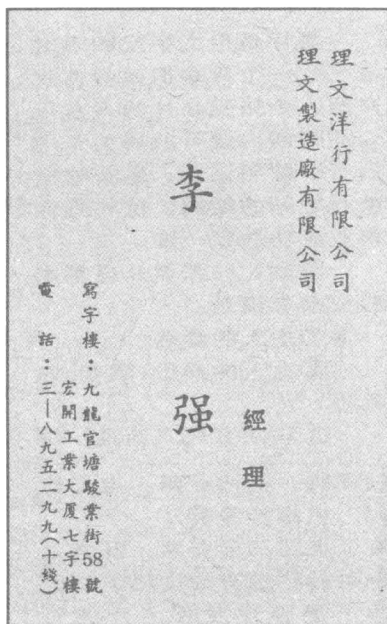 理文洋行有限公司
理文製造廠有限公司
經理
李强
寫字樓：九龍官塘駿業街58號
宏開工業大厦七字樓
電話：三—八九五二九九（十綫）